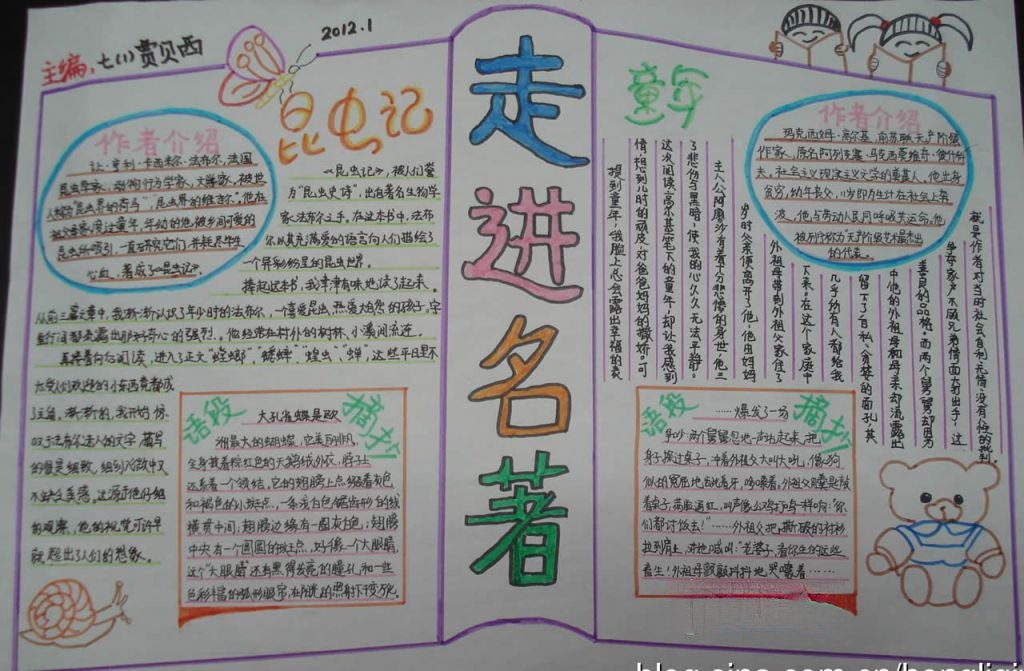 主编:七(1)贾贝西
2012.1
走进名著
昆虫记
作者介绍
让·亨利·卡西米尔·法布尔,法国
昆虫学家、动物行为学家、文学家。被世
人称为"昆虫界的荷马",昆虫界的维吉尔"。他在
昆虫所吸引,一直研究它们并耗尽毕生
心血,著成了《昆虫记》。
《昆虫记》,被人们誉
为"昆虫史诗",出自著名生物学
家法布尔之手。在这本书中,法布
尔以其充满爱的语言向人们描绘了
一个异彩纷呈的昆虫世界。
捧起这本书,我津津有味地读了起来。
从前三篇文章中,我渐渐认识了年少时的法布尔,一个喜爱昆虫、热爱大自然的孩子。字
里行间都表露出那好奇心的强烈。他经常在村外的树林、小溪间流连。
再接着向后阅读,进入了正文"螳螂""蟋蟀""蝗虫""蝉,这些平日里不
太受人们欢迎的小东西竟都成
了主角。渐渐的,我开始惊
叹于法布尔法人的文字描写
的观察。他的视觉可许早
就超出了人们的想象。
语段
摘抄
大孔雀蝶是欧
洲最大的蝴蝶,它美丽非凡,
全身披着棕红色的天鹅绒外衣,脖子上
还系着一个领结,它的翅膀上点缀着灰色
和褐色的小斑点,一条浅白色锯齿形的线
横贯中间,翅膀边缘有一圈灰白色;翅膀
中央有一个圆圆的斑点,好像一个大眼睛,
这个"大眼睛"还有黑得发亮的瞳孔和一些
童年
作者介绍
玛克西姆·高尔基,前苏联无产阶级
作家,原名阿列克塞·马克西莫维奇·彼什科
夫,社会主义现实主义文学的奠基人,他出身
贫穷,幼年丧父,少即为生计在社会上奔
波。他与劳动人民同呼吸共运命。他
被列宁称为"无产阶级艺术最杰出
的代表。
提到童年,我脸上总会露出幸福的表
情,想到儿时的顽皮,对爸爸妈妈的撒娇。可
这次阅读高尔基笔下的童年,却让我感到
了悲伤与黑暗,使我的心久久无法平静。
主人公阿廖沙有着十分悲惨的身世,他三
岁时父亲便离开了他,他由妈妈
外祖母带到外祖父家住了
下来。在这个家庭中
几乎所有人都给我
留下了自私、贪婪的面孔,其
中他的外祖母和母亲却流露出
善良的品格。而两个舅舅却因为
争夺家产不顾兄弟情面大打出手,这
就是作者对当时社会自私、无情、没有人性的批判。
语段
摘抄
……爆发了一场
争吵,两个舅舅忽地一声站起来,把
身子探过桌子,冲着外祖父大叫大吼,像狗
似的冤屈地龇着牙,哆嗦着,外祖父用羹匙敲
着桌子,满脸通红,叫声像公鸡打鸣一样响:"你
们都讨饭去!"……外祖父把撕破的衬衫
拉到肩上,对她喊叫:"老婆子,看你生的这些
畜生!外祖母颤颤抖抖地哭嚎着……